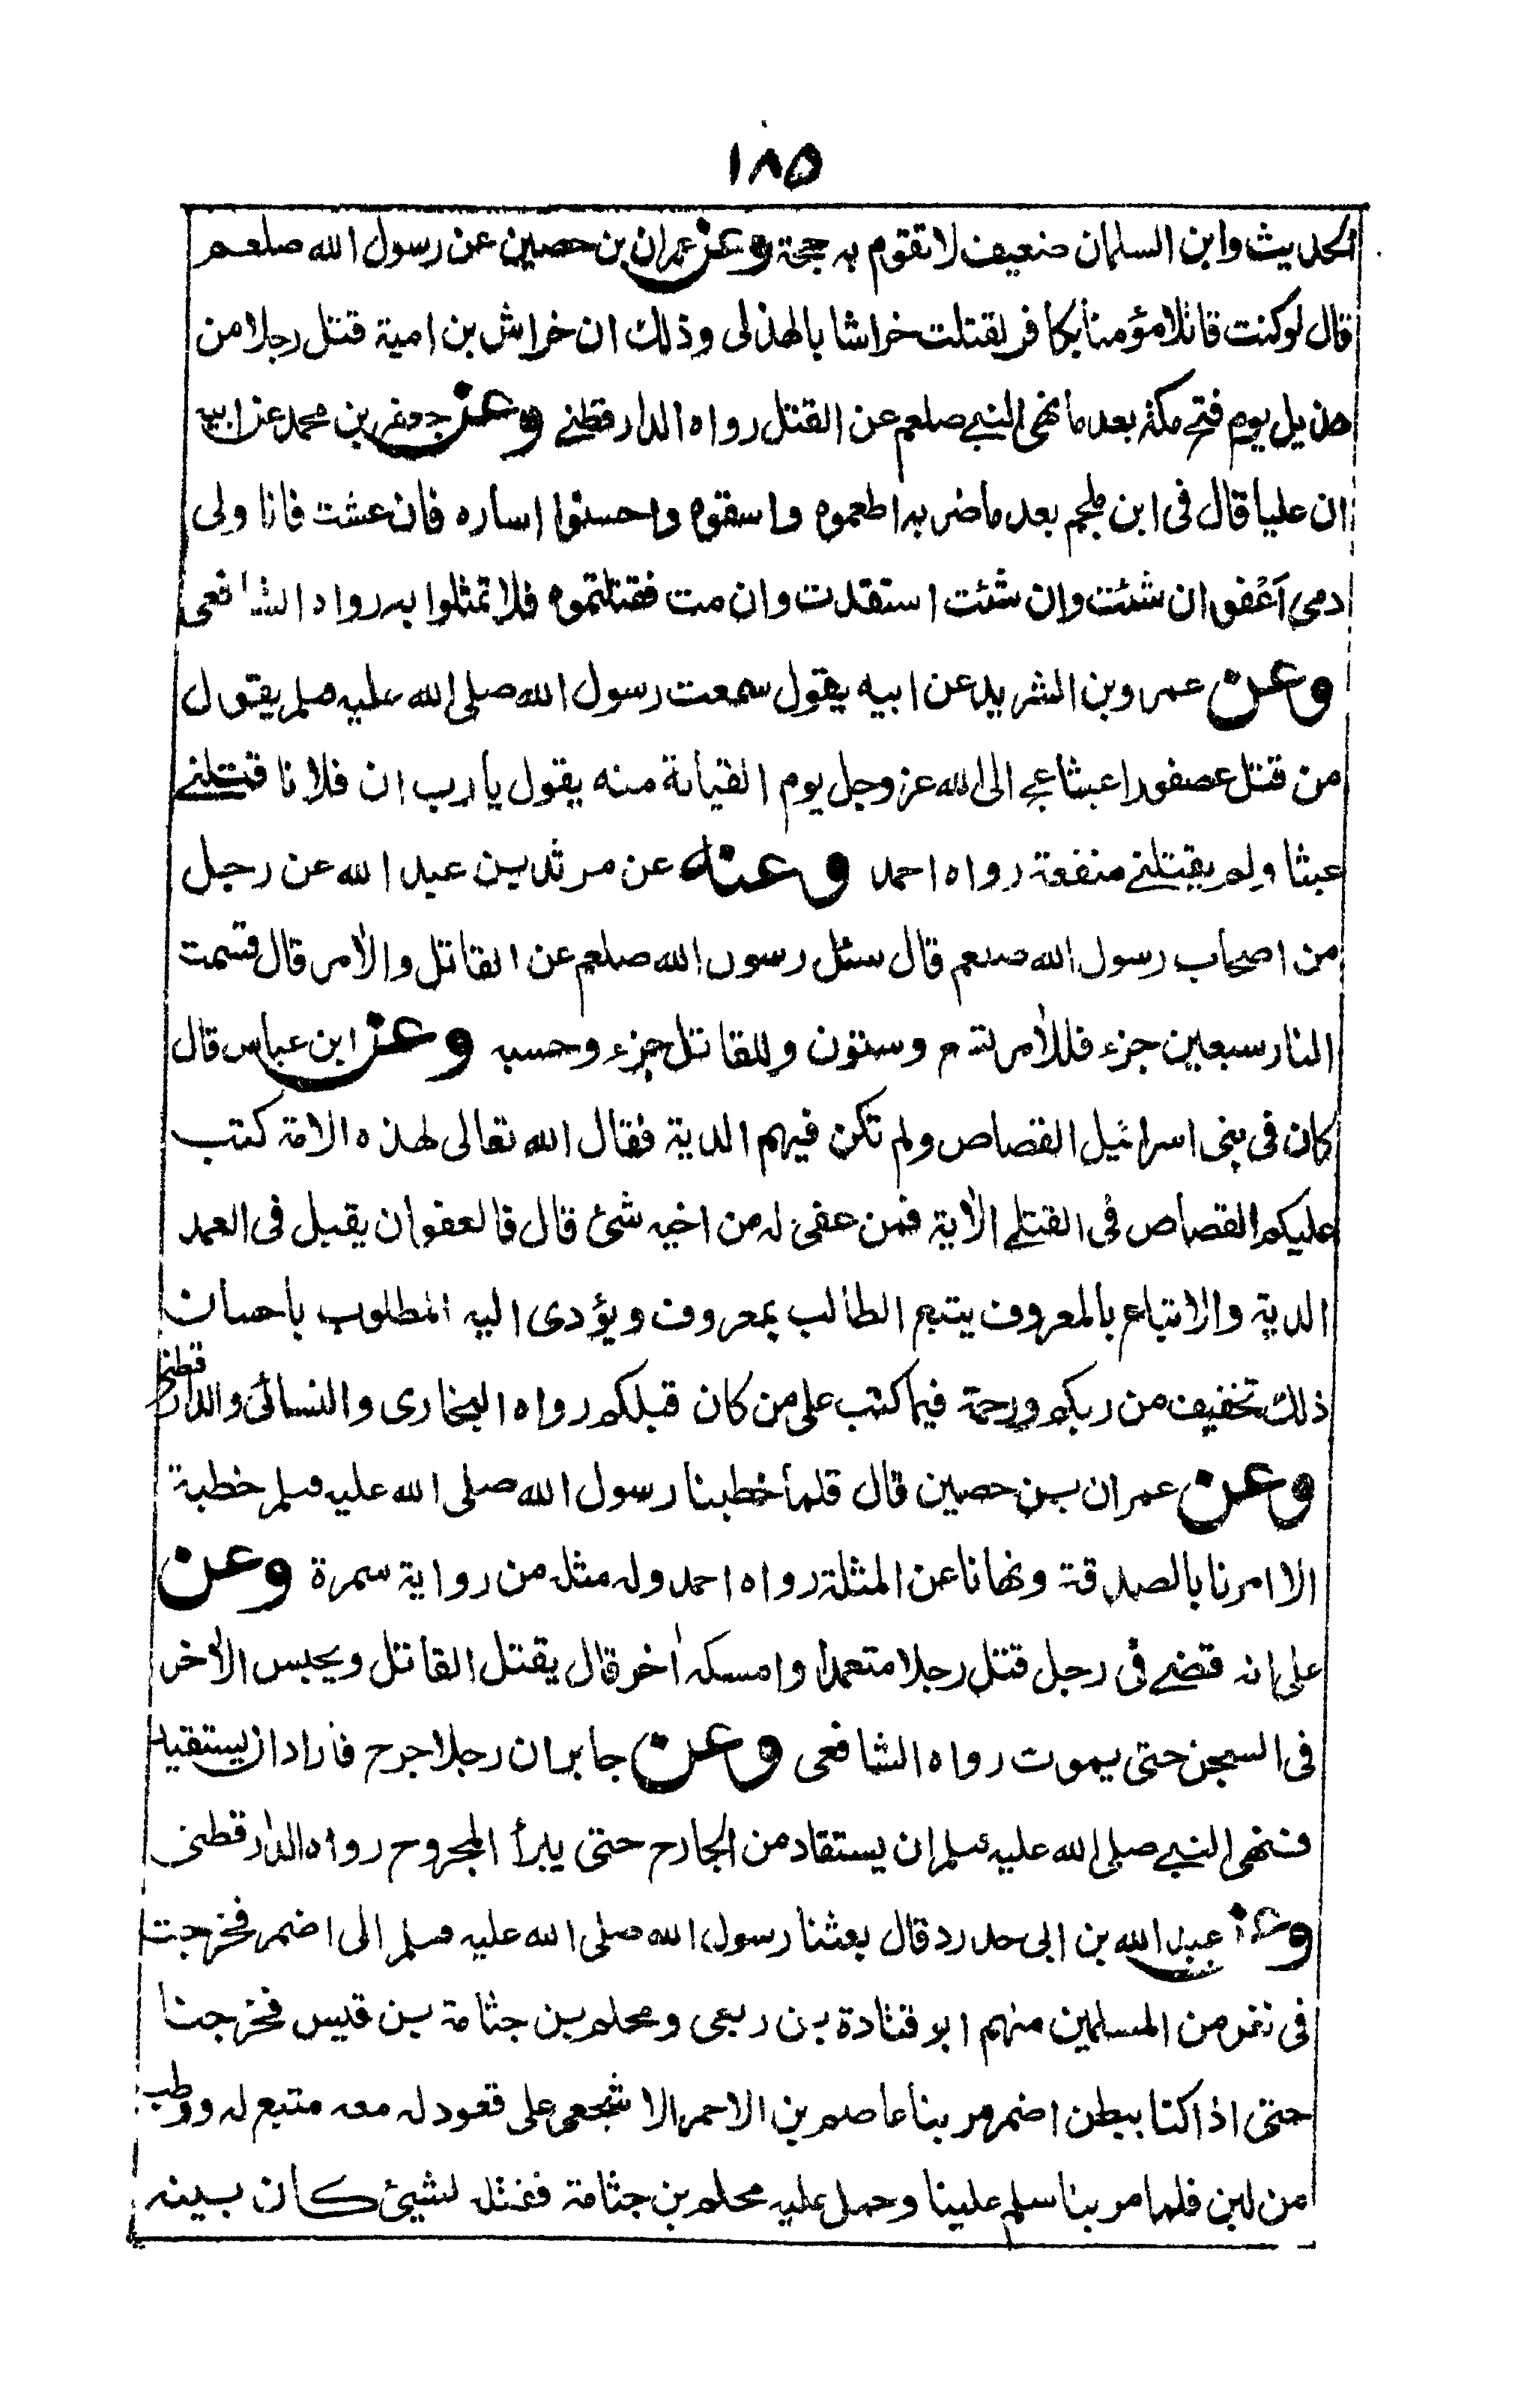 ١٨٥
الحديث وابن السلمان ضعيف لا تقوم به حجة وعن عمران بن حصين عن رسول الله صلعم
قال لوكنت قاتلا مؤمنا بكافر لقتلت خراشا بالهذلى وذلك ان خراش بن امية قتل رجلا من
هذيل يوم فتح مكة بعد ما نهى النبي صلعم عن القتل رواه الدارقطني وعن جعفر بن محمد عن ابيه
ان عليا قال فى ابن ملجم بعد ما ضربه اطعموه واسقوه واحسنوا اساره فان عشت فانا ولى
دمى اَعْفو ان شئت وان شئت استقدت وان مت فقتلتموه فلا تمثلوا به رواه الشافعى
وعن عمرو بن الشريد عن ابيه يقول سمعت رسول الله صلى الله عليه وسلم يقول
من قتل عصفورا عبثا عج الى الله عز وجل يوم القيامة منه يقول يارب ان فلانا قتلنے
عبثا ولم يقتلنے منفعة رواه احمد وعنه عن مرثد بن عبد الله عن رجل
من اصحاب رسول الله صلعم قال سئل رسول الله صلعم عن القاتل والاٰمر قال قسمت
النار سبعين جزء فللاٰمر تسع وستون وللقاتل جزء وحسبه وعن ابن عباس قال
كان فى بنى اسرائيل القصاص ولم تكن فيهم الدية فقال الله تعالى لهذه الامة كتب
عليكم القصاص فى القتلے الاٰية فمن عفى له من اخيه شئ قال فالعفو ان يقبل فى العمد
الدية والاتباع بالمعروف يتبع الطالب بمعروف ويؤدى اليه المطلوب باحسان
ذلك تخفيف من ربكم ورحمة فيما كتب على من كان قبلكم رواه البخارى والنسائى والدارقطنى
وعن عمران بن حصين قال قلما خطبنا رسول الله صلى الله عليه وسلم خطبة
الا امرنا بالصدقة ونهانا عن المثلة رواه احمد وله مثله من رواية سمرة وعن
على انه قضے فى رجل قتل رجلا متعمدا وامسكه اٰخر قال يقتل القاتل ويحبس الاٰخر
فى السجن حتى يموت رواه الشافعى وعن جابر ان رجلا جرح فاراد ان يستقيد
فنهى النبے صلى الله عليه وسلم ان يستقاد من الجارح حتى يبرأ المجروح رواه الدارقطنى
وعن عبد الله بن ابى حدرد قال بعثنا رسول الله صلى الله عليه وسلم الى اضمر فخرجت
فى نفر من المسلمين منهم ابو قتادة بن ربعى ومحلم بن جثامة بن قيس فخرجنا
حتى اذا كنا ببطن اضمر مر بنا عاصم بن الاحمر الاشجعى على قعود له معه متيع له ووطب
من لبن فلما مر بنا سلم علينا وحمل عليه محلم بن جثامة فقتله لشيئ كان بينه